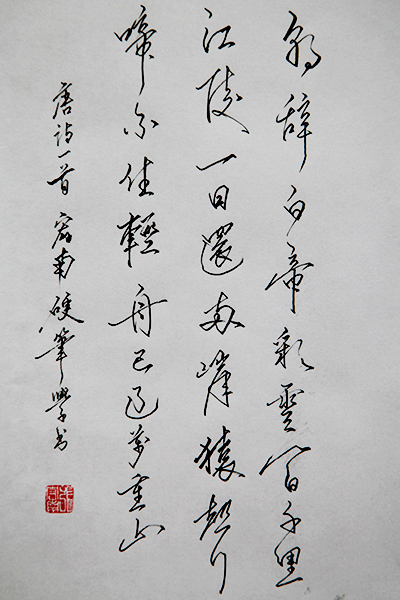 朝辞白帝彩雲间千里
江陵一日還两岸猿声
啼不住輕舟已过萬重山
唐诗一首 南硬筆學书